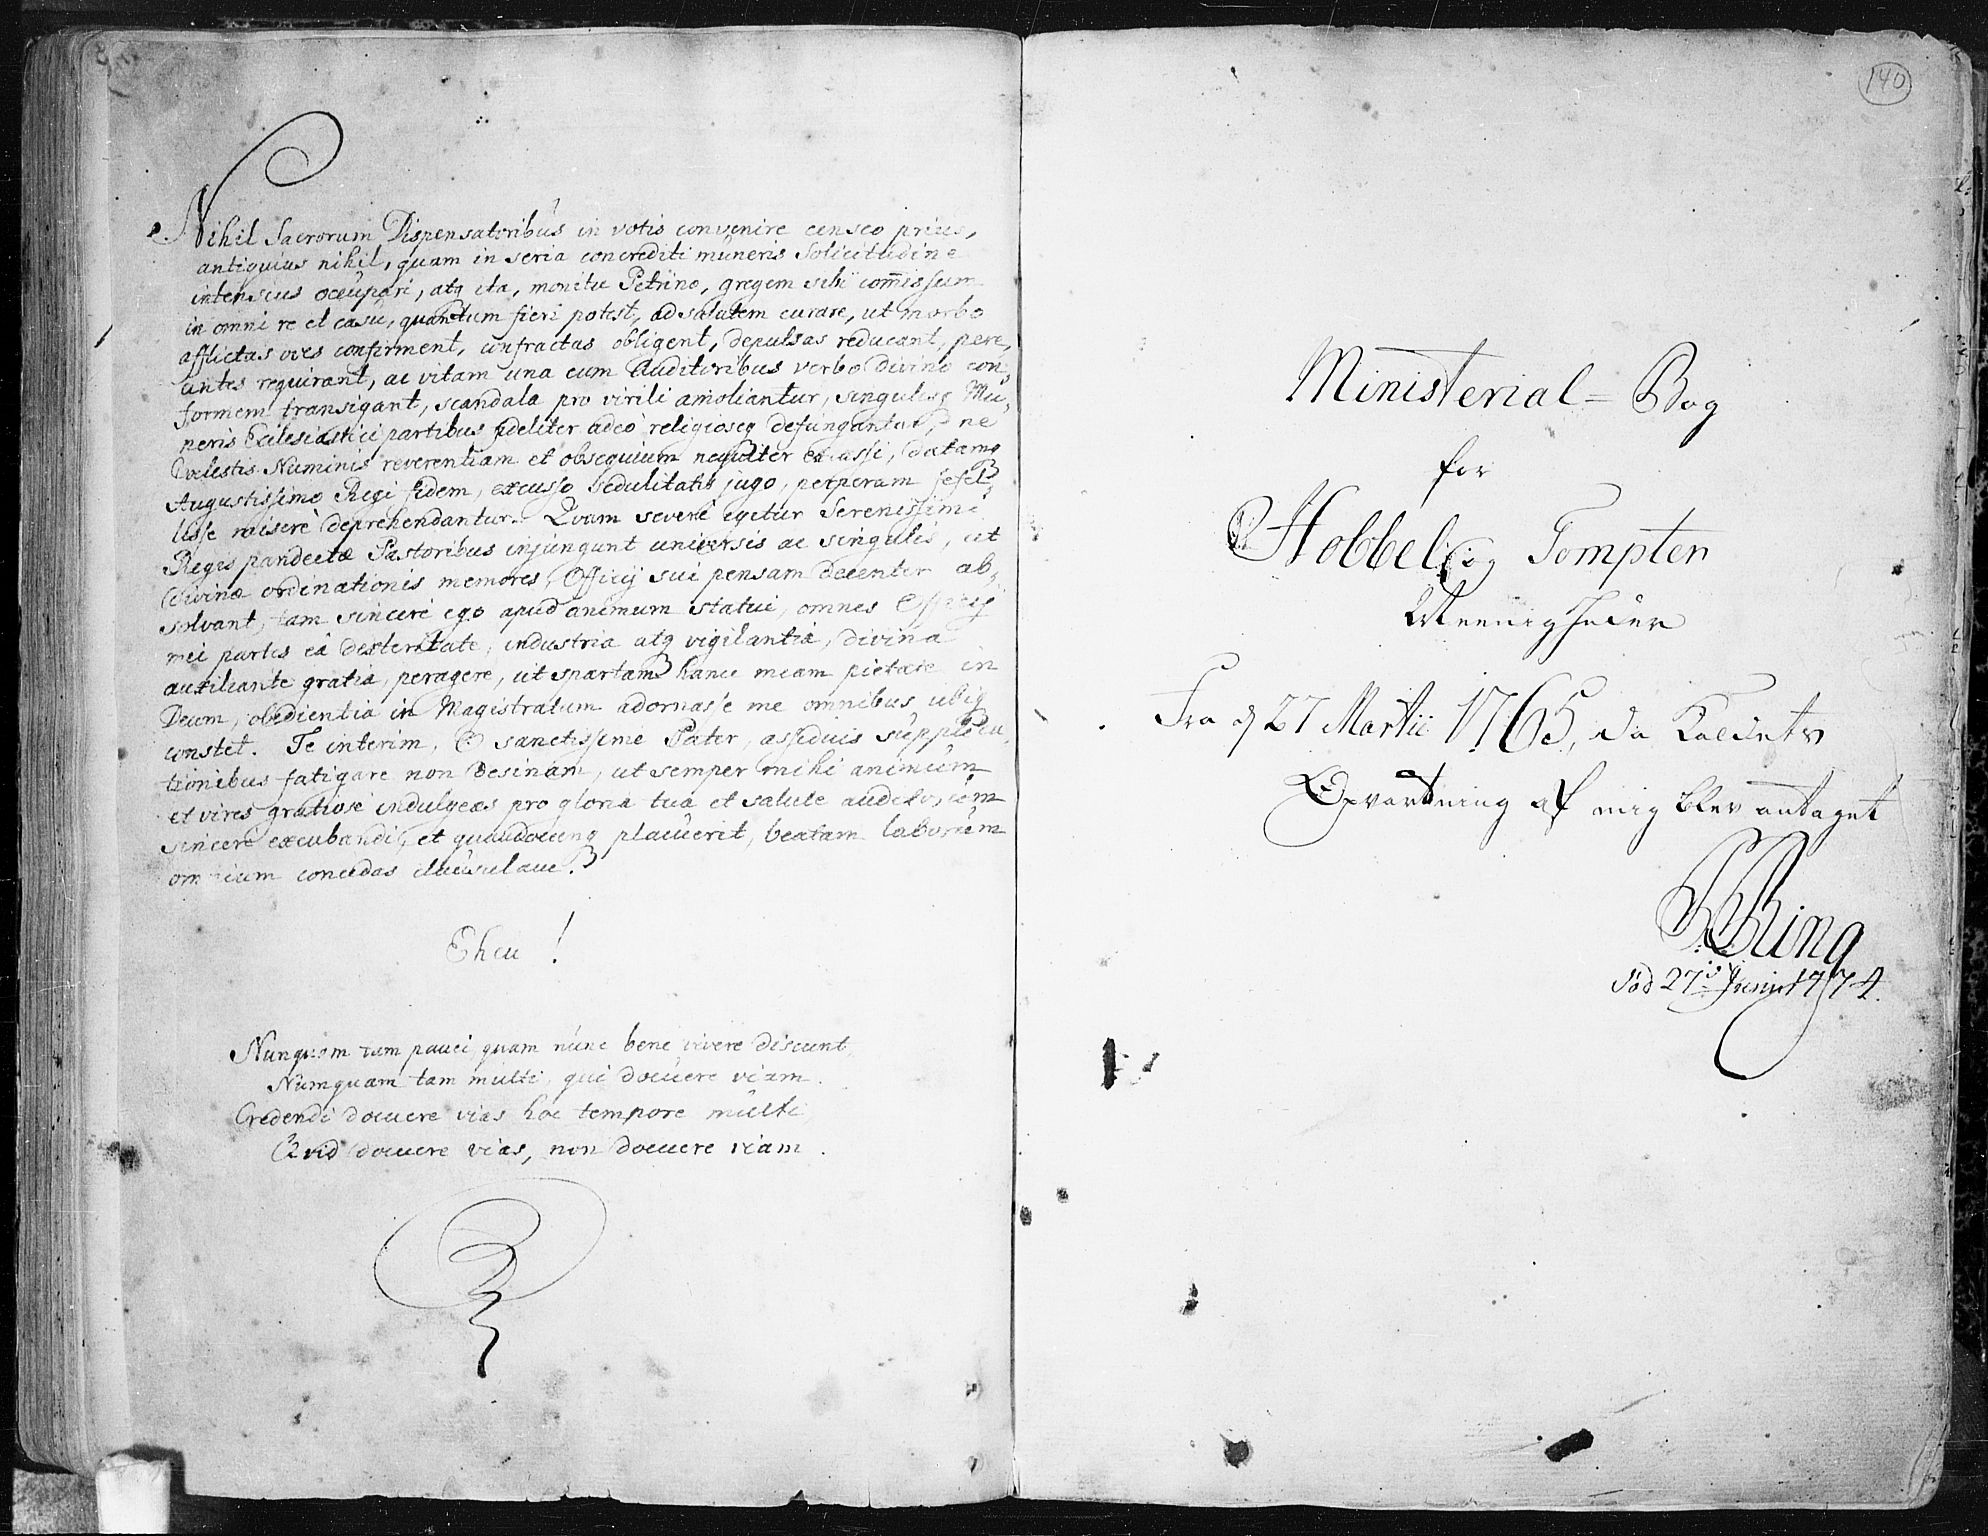 Nihil Sacrorum Dispensatoribus in votis convenire censeo prius,
antiquius nihil, quam in seria concrediti muneris Solicitudine
intensius occupari, atq ita, monitu Petrino, gregem sibi com̅issum
in omni re et casu, quantum fieri potest, ad salutem curare, ut morbo
afflictas oves confirment, confractas obligent, depulsas reducant, pere,
untes requirant, ac vitam una cum Auditoribus verbo Divino con,
formem transigant, scandala pro virili amoliantur, singulisq Mu,
neris Ecclesiastici partibus fideliter adeò religioseq defungantur, ne
Coelestis Numinis reverentiam et obsequium nequiter
Augustissimo Regi fidem, excusso sedulitatis jugo, perperam fefel,
lisse miserè deprehendantur. Qvam severè igitur Serenissimi
Regis pandectæ Pastoribus injungunt universis ac singulis, ut
Divinæ ordinationis memores, Officij sui pensam decenter ab,
solvant, tam sincerè ego apud animum statui, omnes Officij
mei partes eâ dexteritate, industria atq vigilantiâ, divina
auxiliante gratia, peragere, ut spartam hanc meam pietate in
Deum, obedientia in Magistratum adornasse me omnibus ubiq
constet. Te interim, O sanctissime Pater, assiduis supplica,
tionibus fatigare non desinam, ut semper mihi animum
et vires gratiose indulgeas pro gloria tua et salute
sincere excubandi, et quandocunq placuerit, beatam laborum
omnium concedas clausulam.
Eheu!
Nunquam tam pauci, quam nunc bene vivere discunt,
Numquam tam multi, qui docuere viam.
Credendi docuere vias hoc tempore multi,
Qvid docuere vias, non docuere viam.
140
Ministerial = Bog
for
Hobbel: og Tompter
Meenigheder
Fra d 27 Martii 1765, da Kaldets
Opvartning af mig blev antaget
Ring
død 27 Junii 1774.